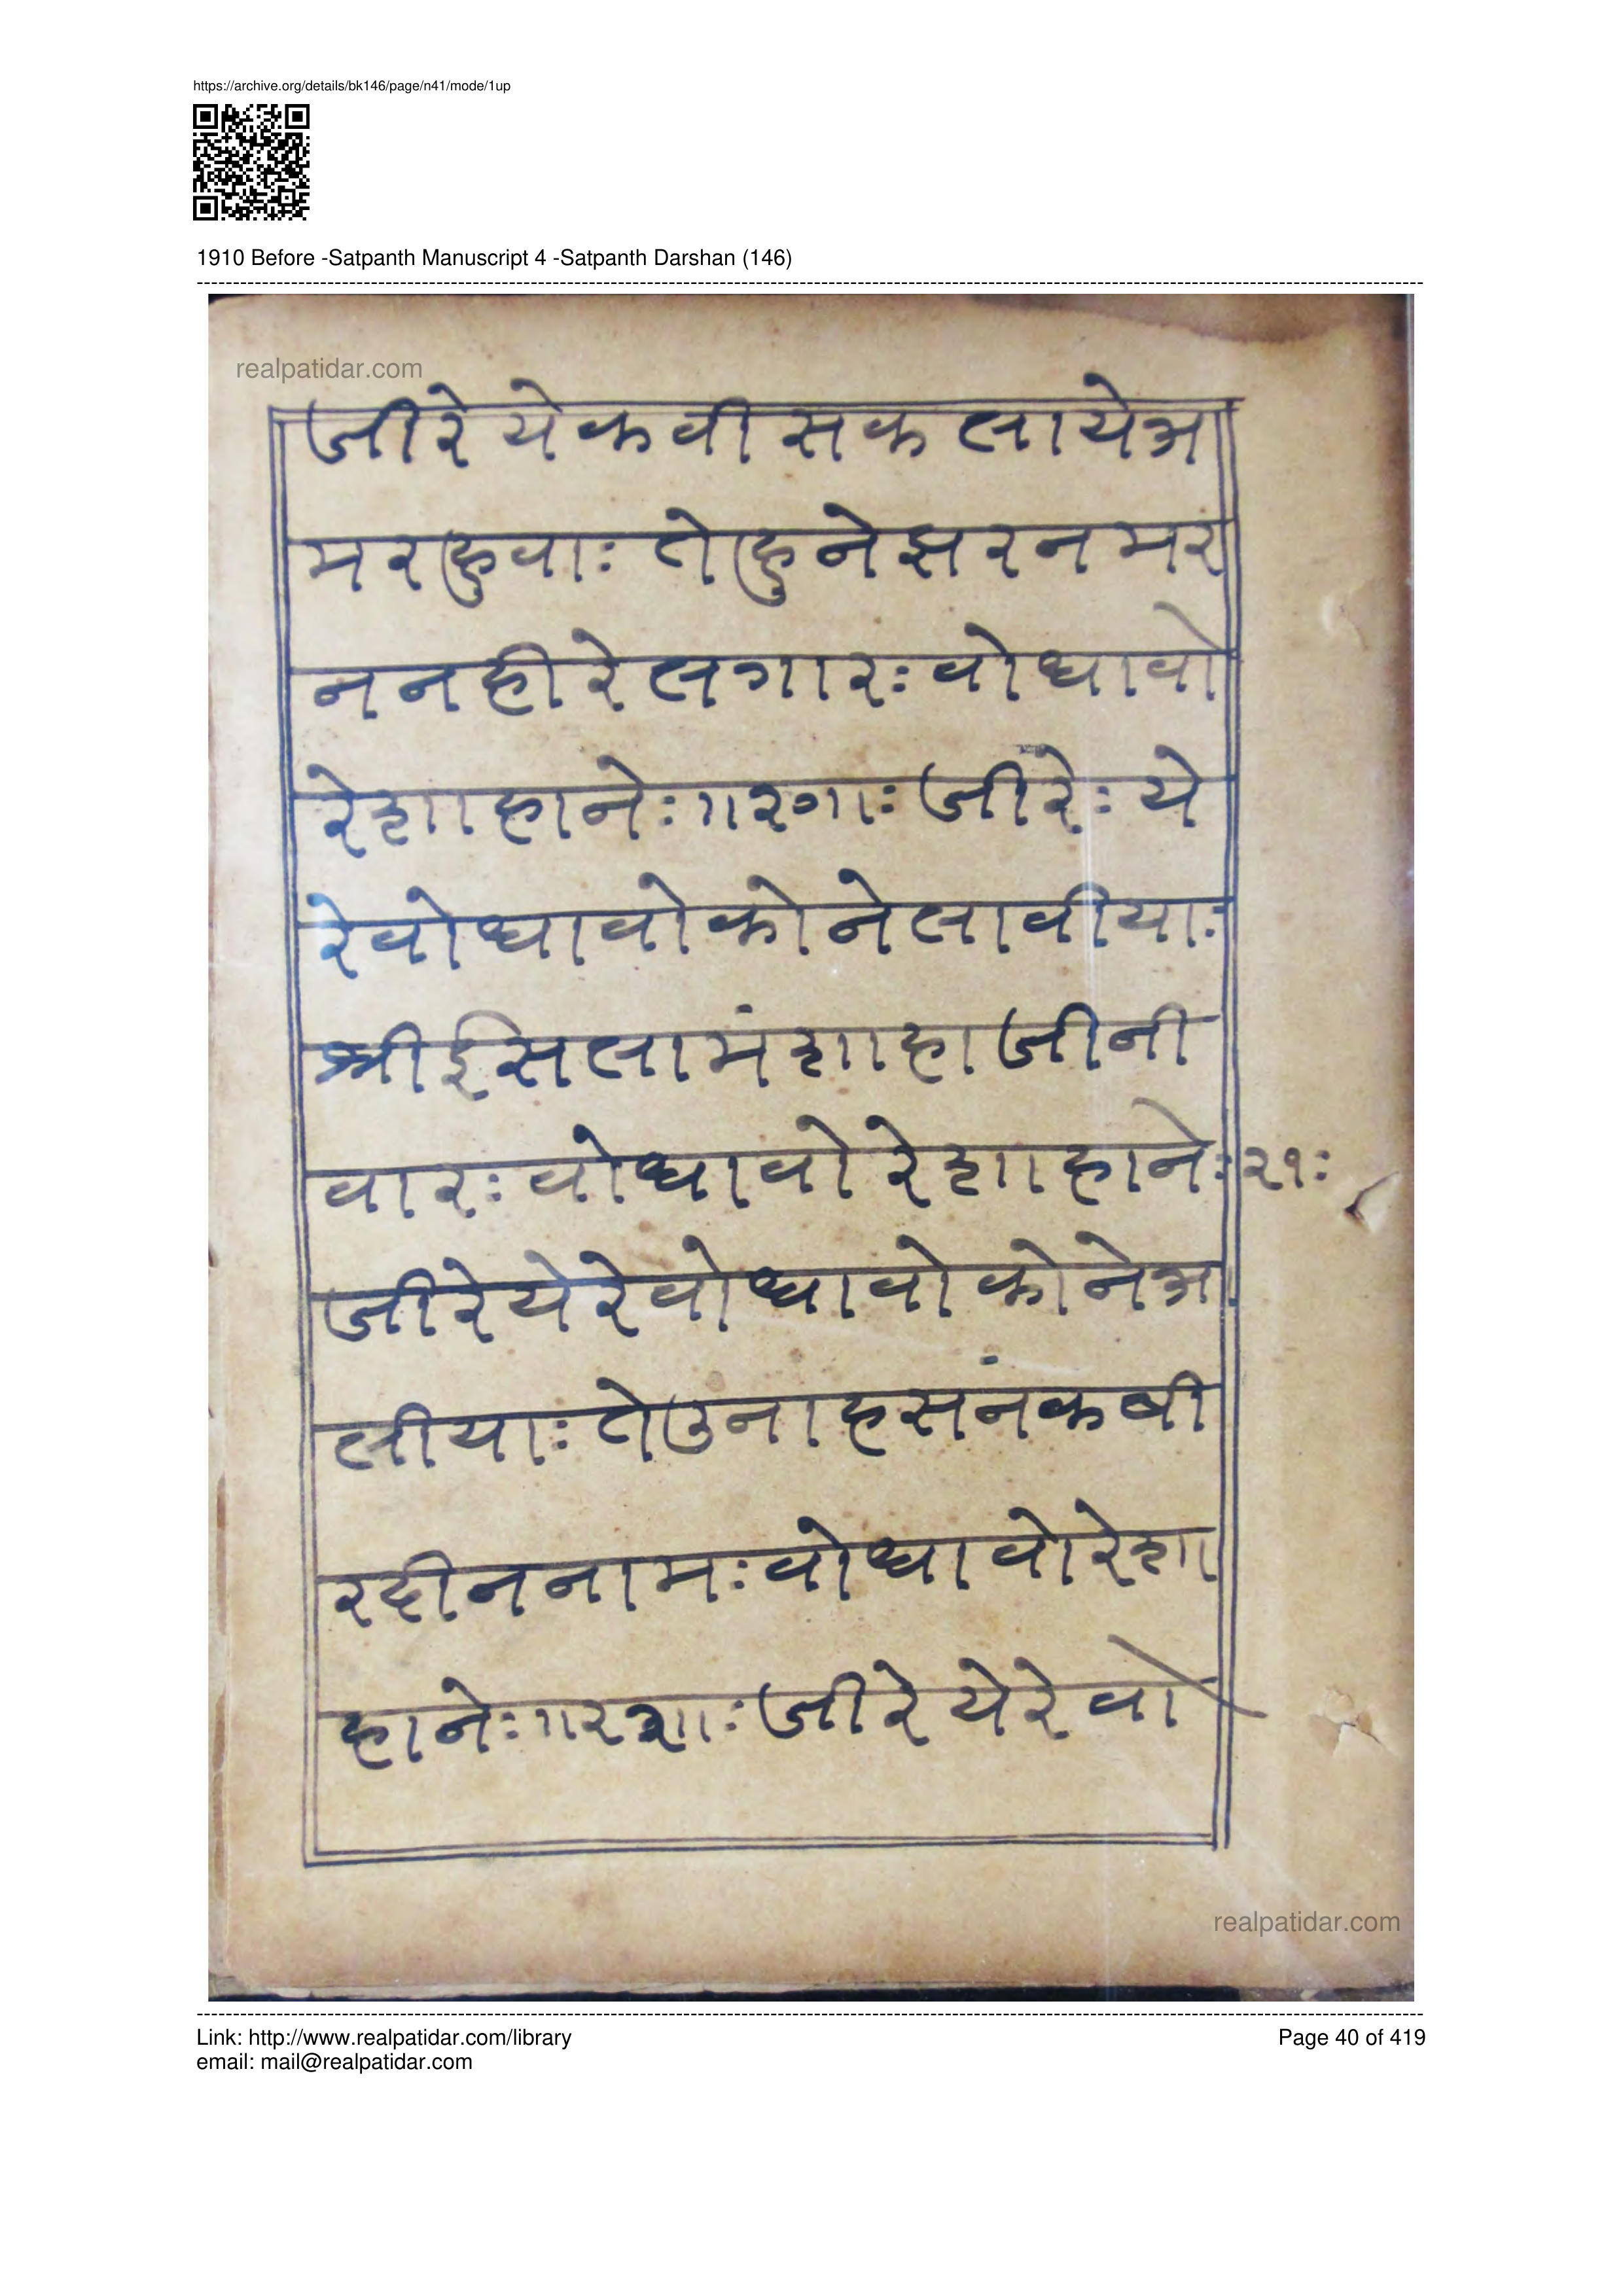 https://archive.org/details/bk146/page/n41/mode/1up
1910 Before -Satpanth Manuscript 4 -Satpanth Darshan (146)
realpatidar.com
जीरे येकवीसकलायेअ
मरहुवाः तेहुनेझरनमर
ननहीरेलगारः वोधावो
रेशाहानेः ॥२०॥ः जीरेः ये
रेवोधावोकोनेलावीयाः
श्रीईसलामंशाहाजीनी
वारः वोधावो रेशाहानेः २१ः
जीरेयेरेवोधावोकोनेअ
लीयाः तेउनाहसनंकबी
रदीननामः वोधावोरेशा
हानेः ॥२२॥ः जीरे येरे वो
realpatidar.com
Link: http://www.realpatidar.com/library
email: mail@realpatidar.com
Page 40 of 419